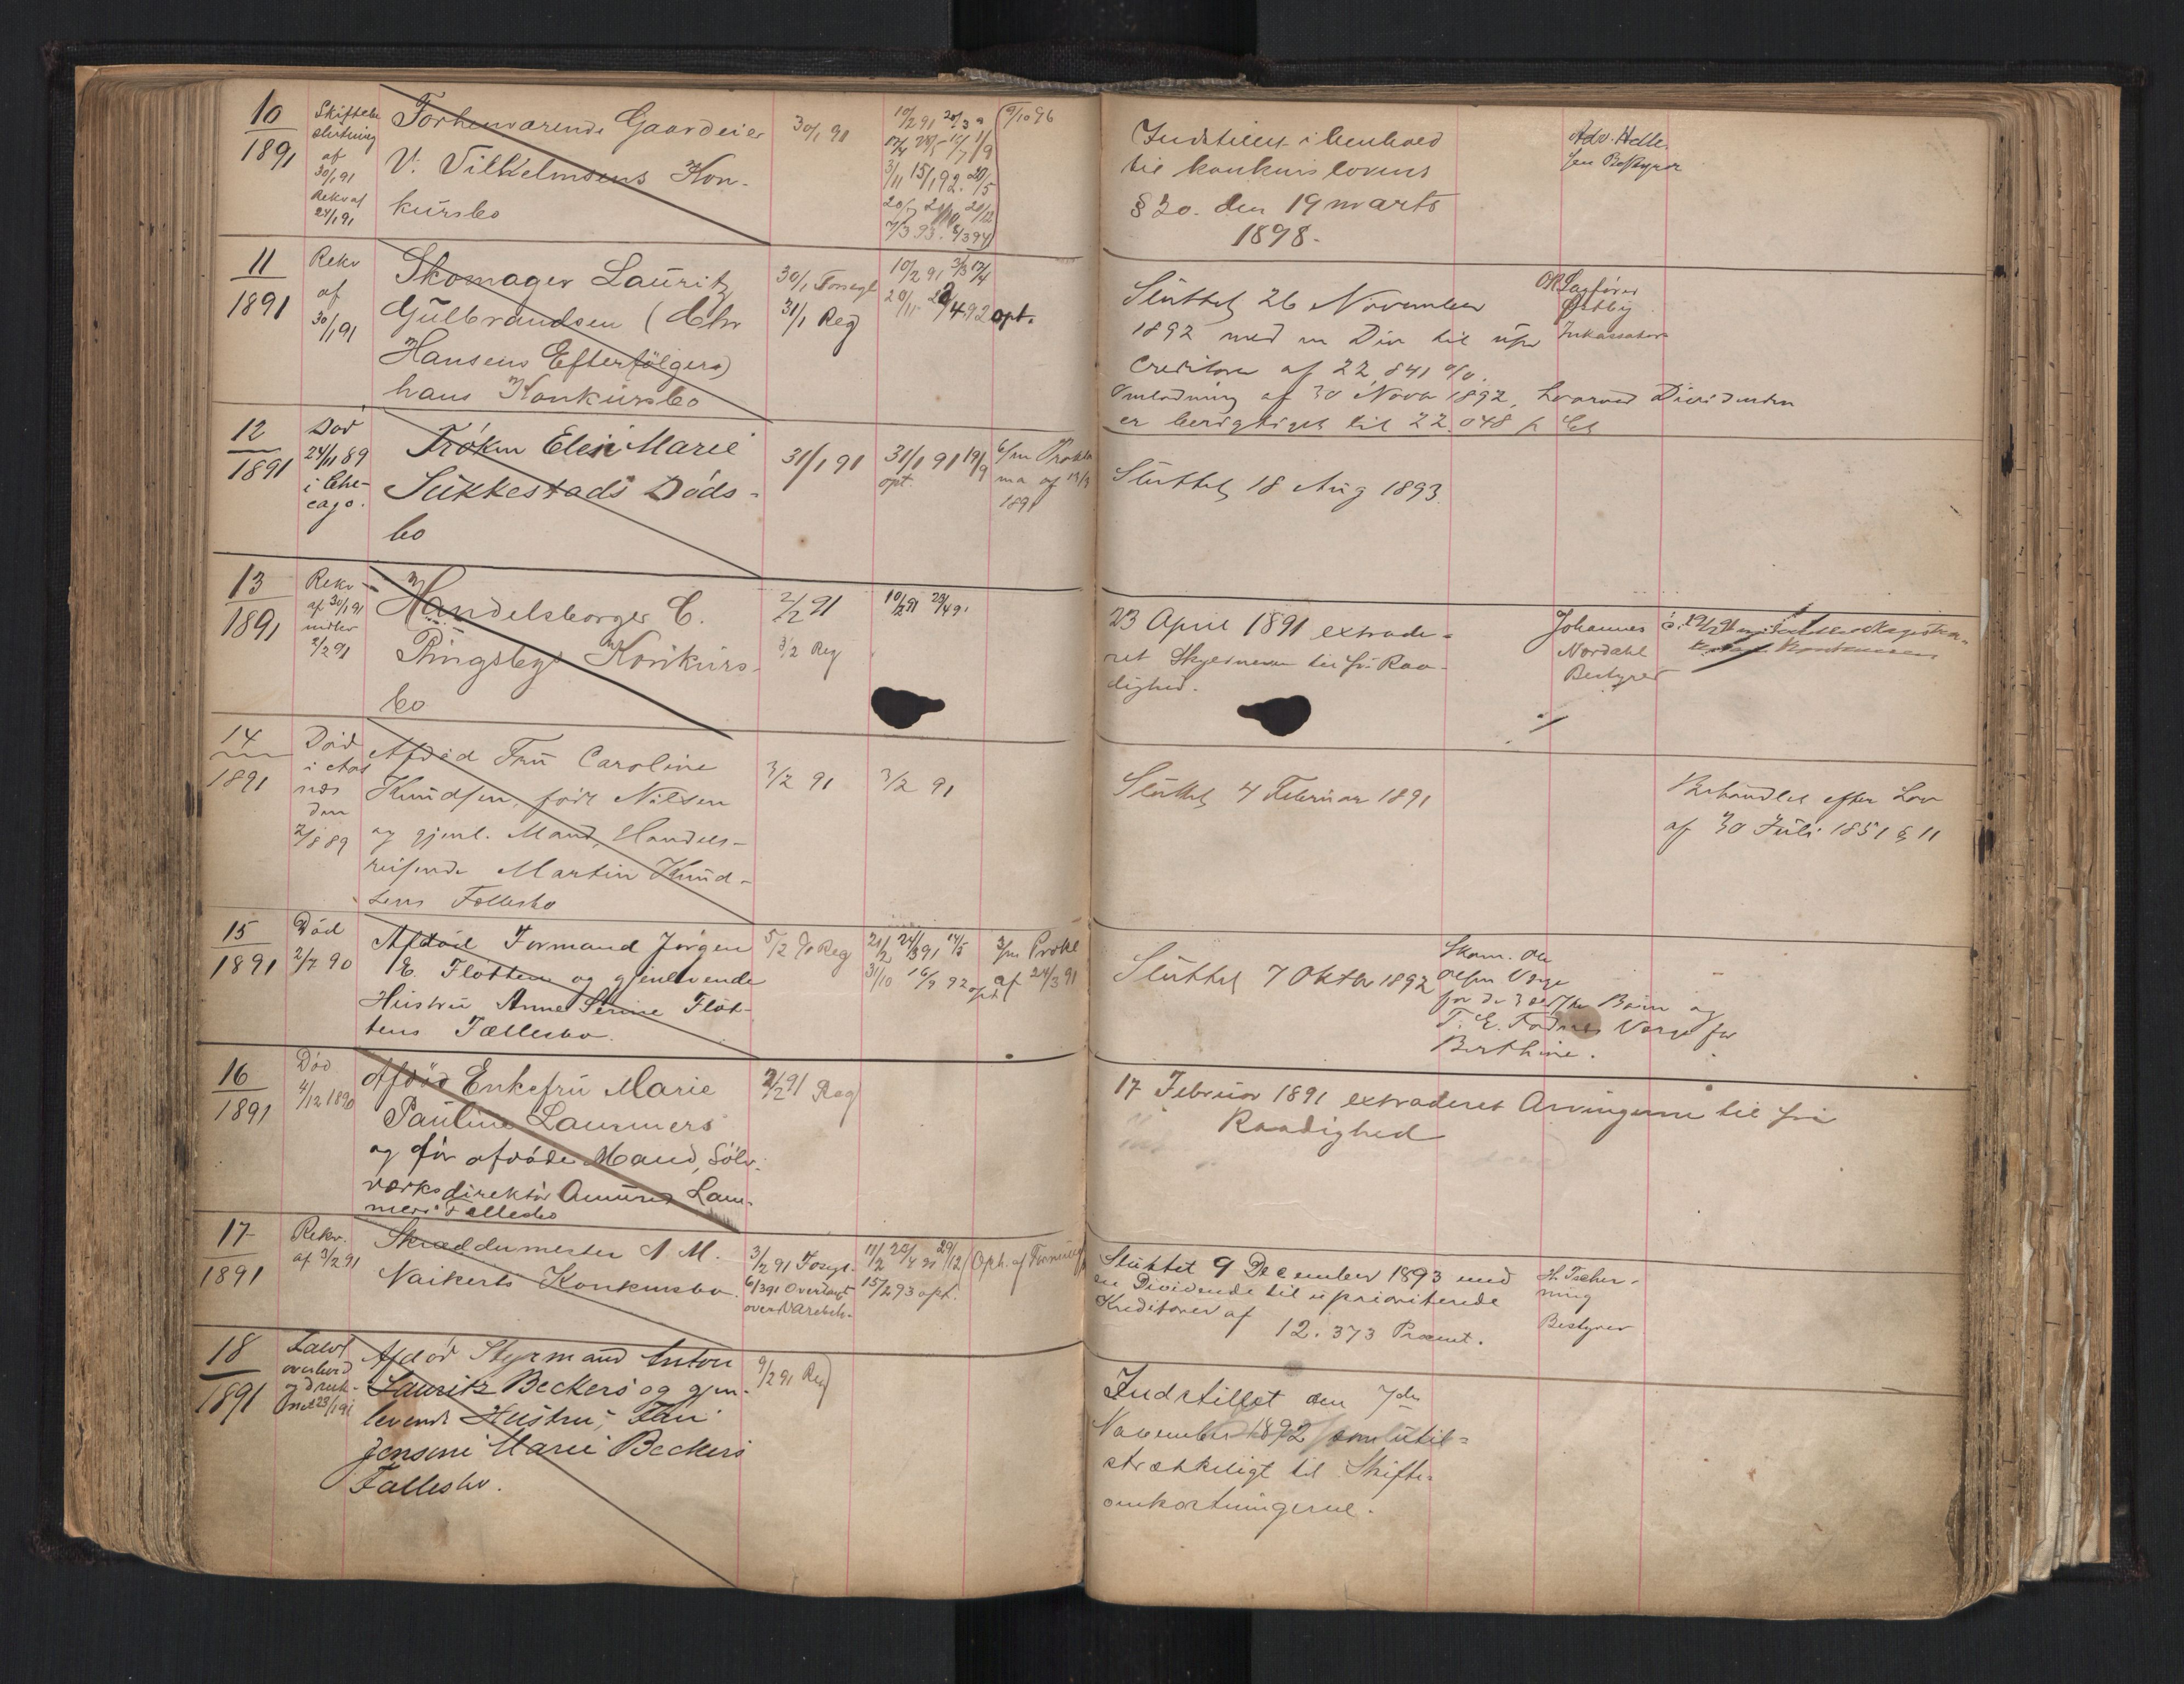 10
1891
Skiftebe
slutning
af
30/1 91
Rekv af
24/1 91
Forhenværende Gaardeier
V. Vilhelmsens Kon-
kursbo
30/1 91
10/2 91 20/3
3/11 15/1 92. 20/5
7/3 93. 8/3 94
9/10 96
Indstillet i henhold
til konkurslovens
§ 30. den 19 marts
1898.
Adv. Helle.
Bestyrer
11
1891
Rekv
af
30/1 91
Skomager Lauritz
Gulbrandsen (Chr
Hansens Efterfölgers)
hans Konkursbo
30/1 Forsegl
31/1 Reg
10/2 91
20/11 2/4 92 opt.
Sluttet 26 November
1892 med en Div til upr
Creditorer af 22,841 %.
Omlodning af 30 Novbr 1892, hvorved Dividenden
er berigtiget til 22.048 p Ct
Sagfører
Østby
Inkassator
12
1891
Död
24/11 89
i Chi-
cago.
Fröken Eleni Marie
Sukkestads Döds-
bo
31/1 91
31/1 91 19/9
opt.
6/m Prokla
ma af 13/3
1891
Sluttet 18 Aug 1893.
13
1891
Rekv
af 30/1 91
indlev
2/2 91
Handelsborger C.
Ringsbys Konkurs-
bo
2/2 91
3/2 Reg
10/2 91 23/4 91
23 April 1891 extrade-
ret Skyldneren til fri Raa-
dighed.
Johannes
Nordahl
Bestyrer
14
1891
Död
i Aas
næs
den
2/8 89
Afdöd Fru Caroline
Knudsen, födt Nilsen
og gjenl. Mand, Handels-
reisende Martin Knud-
sens Fællesbo
3/2 91
3/2 91
Sluttet 4 Februar 1891
Behandlet efter Lov
af 30 Juli 1851 § 11
15
1891
Död
2/7 90
Afdöd Formand Jörgen
E. Flotten og gjenlevende
Hustru Anne Serine Flot-
tens Fællesbo.
5/2 Reg
21/2 24/3 91 14/5
31/10 16/9 92 opt
3/m Prokl
af 24/3 91
Sluttet 7 Oktbr 1892
Skom. Ole
Olsen Værge
for de 3 Börn og
T. E. Fodnes Værge for
Berthine.
16
1891
Död
4/12 1890
Afdöd Enkefru Marie
Pauline Lammers
og för afdöde Mand, Sölv-
værksdirektör Amund Lam-
mers Fællesbo
7/2 91 Reg
17 Februar 1891 extraderet Arvingerne til fri
Raadighed
17
1891
Rekv.
af 3/2 91
Skræddermester A. M.
Naikerts Konkursbo.
3/2 91 Forsegl.
6/3 91 Overtaget
over Varebeh.
17/2 20/4 91 29/12
15/2 93 opt.
Sluttet 9 December 1893 med
en Dividende til upriorterede
Kreditorer af
12.373 Procent.
H. Tscher-
ning
Bestyrer
18
1891
Faldt
overbord
og druk-
net 23/1 91
Afdöd Styrmand Anton
Lauritz Beckers og gjen-
levende Hustru,
Jensine Marie Beckers
Fællesbo.
9/2 91 Reg
Indstillet den 7de
November 1892 som util-
strækkeligt til Skifte-
omkostningerne.